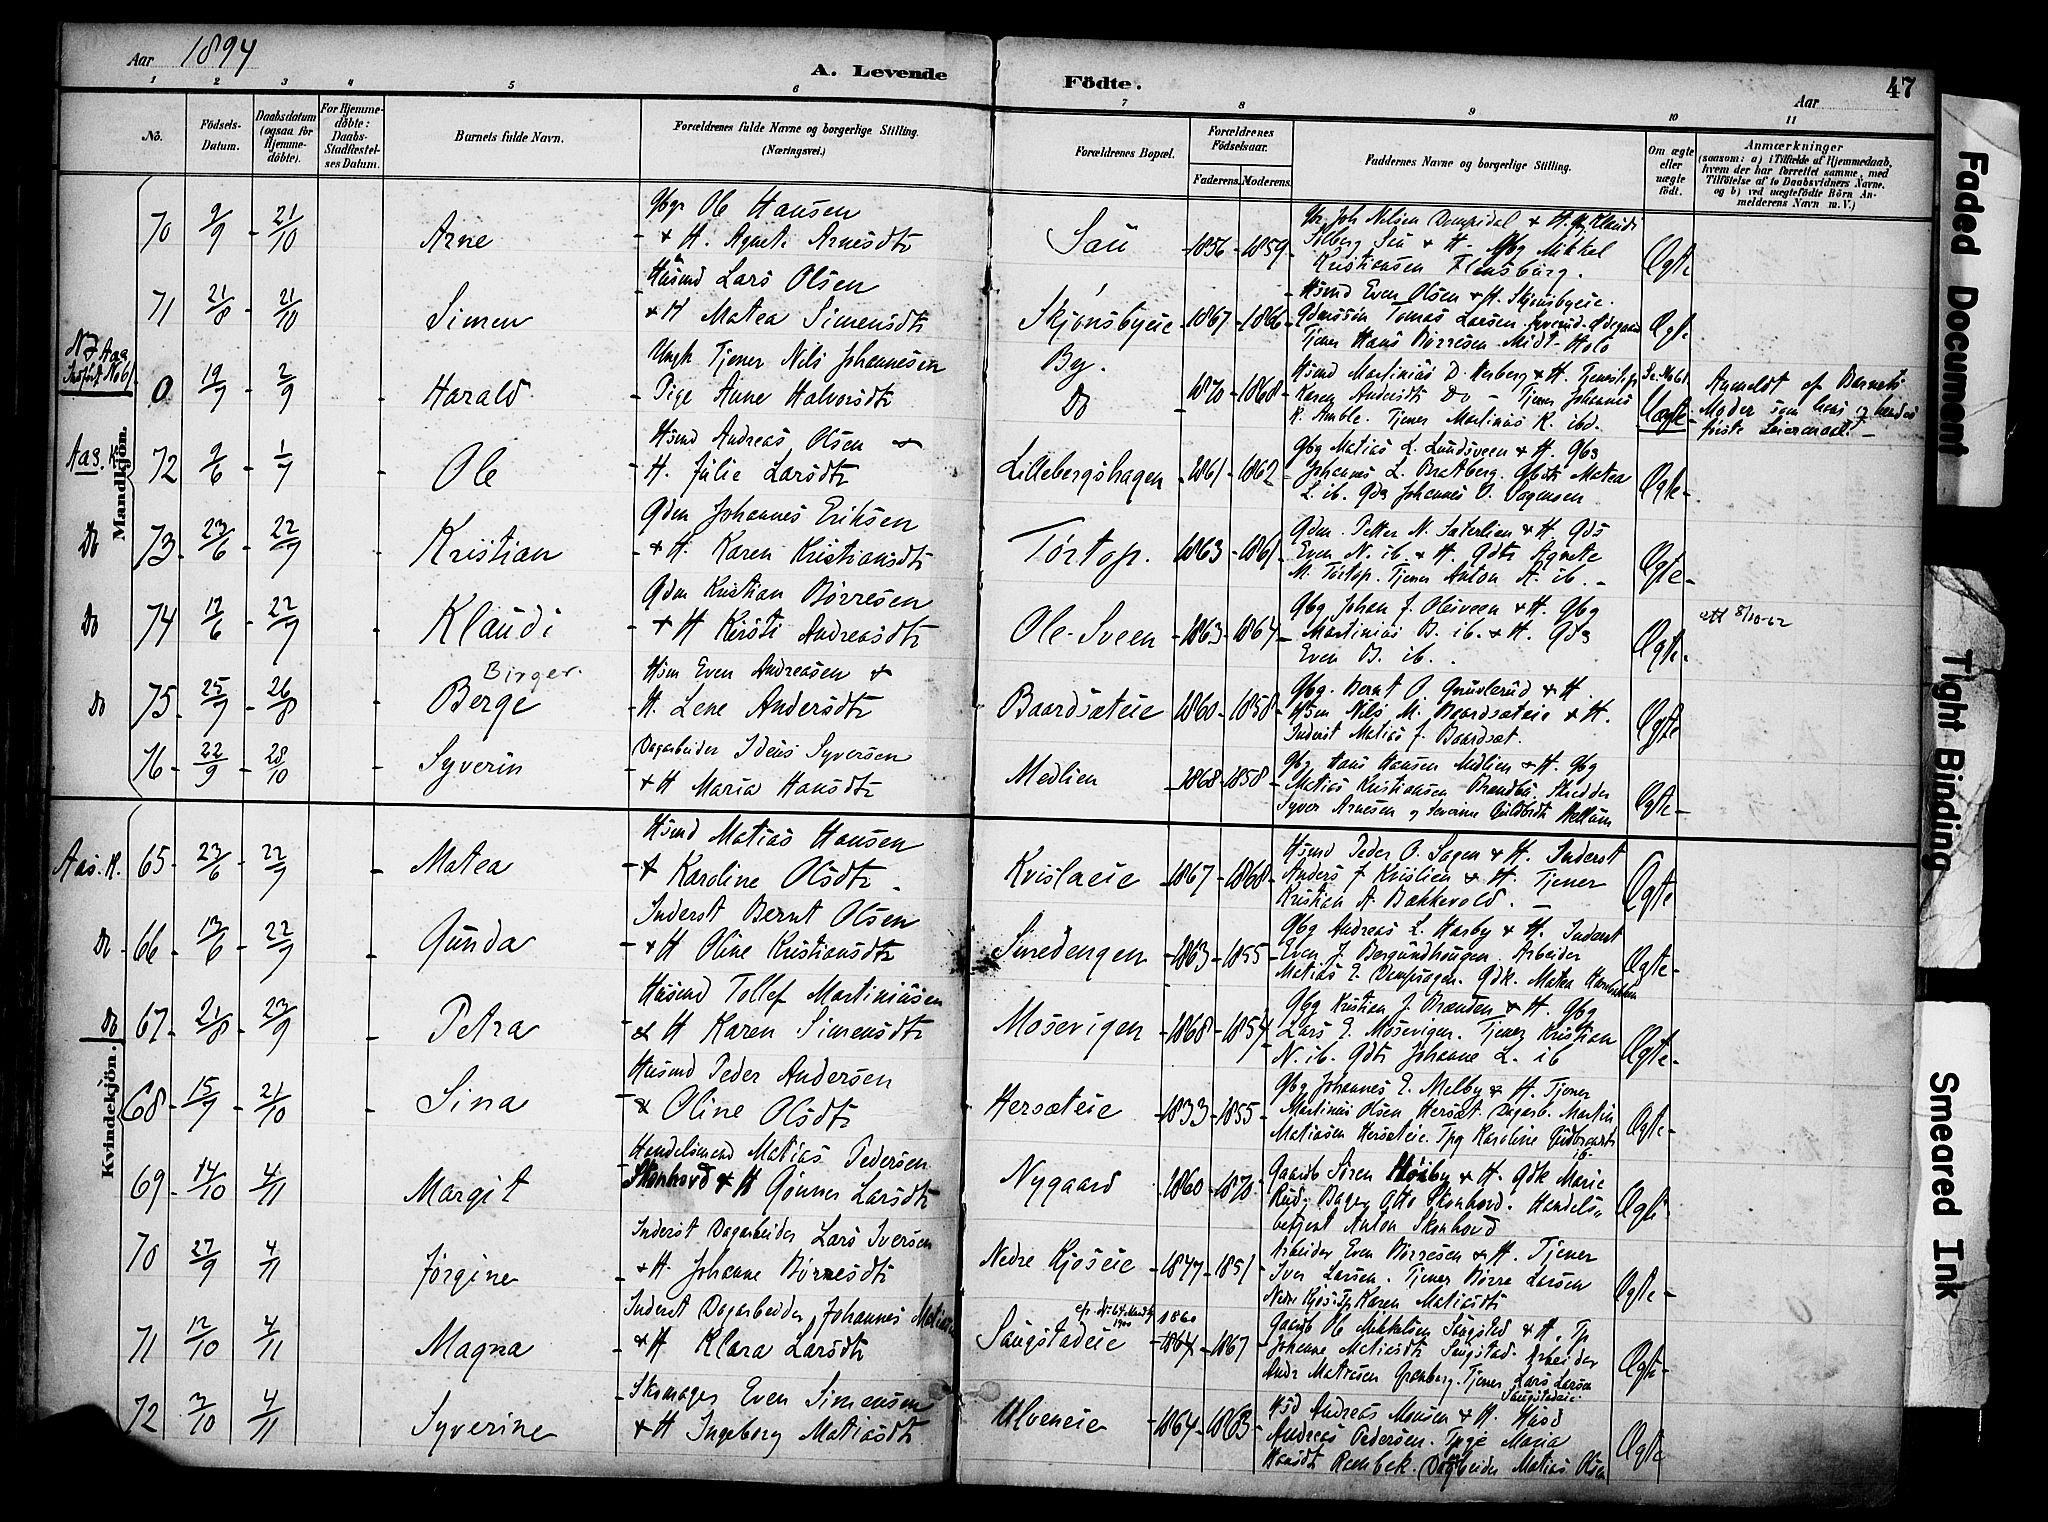 Aar 1894
A. Levende
Födte.
Aar
47
1 2 3 4 5 6 7 8 9 10 11
No.
Födsels-Datum.
Daabsdatum (ogsaa for Hjemmedöbte).
For Hjemmedöbte: Daabs-Stadfæstelses Datum.
Barnets fulde Navn.
Forældrenes fulde Navne og borgerlige Stilling. (Næringsvei.)
Forældrenes Bopæl.
Forældrenes Födselsaar.
Faderens. Moderens.
Faddernes Navne og borgerlige Stilling.
Om ægte eller uægte födt.
Anmærkninger
(saasom: a) i Tilfælde af Hjemmedaab, hvem der har forrettet samme, med Tilföielse af to Daabsvidners Navne. og b) ved uægtefödte Börn Anmelderens Navn m. V.)
Mandkjön.
70 9/9 - 21/10 Arne
Gbgr Ole Hansen
+ H. Agnete Arnesdtr
Sau 1856 - 1859
Kristiansen Flensburg.
Ægte
71 21/8 21/10 Simen
Husmd Lars Olsen
+ H Matea Simensdtr
Skjönsbyeie 1867 - 1866
Husmd Even Olsen + H. Skjönsbyeie.
Tjener Hans Börresen Midt-Holo
Ægte
0 19/7 2/9 Harald
Ungk Tjener Nils Johannesen
Pige Anne Halvorsdtr
By.
Do 1870 - 1868
Karen Andersdt Do - Tjener Johannes
K. Amble. Tjener Martinius K. ibd.
Uægte
Anmeldt af Barnets
Moder som hans og hendes
förste Leiermaal.
Aas K. 72 2/6 - 1/7 Ole
Hsmd Andreas Olsen +
H. Julie Larsdtr
Lillebergshagen 1861 - 1862
Gbg Matias L. Lundsveen + H. Gbs
Johannes L. Bratberg. Gbdtr Matea
L. ib. Gds Johannes O. Sagensen
Ægte
Do 73 23/6 - 22/7 Kristian
Gdm Johannes Eriksen
+ H. Karen Kristiansdtr
Törtop. 1863 - 1861
Gdm. Petter N. Sæterlien + H. Gds
Even N. ib. + H. Gdtr Agnete
M. Törtop. Tjener Anton A. ib.
Ægte
Do 74 17/6 - 22/7 Klaudi
Gdm Kristian Börresen
+ H Kersti Andreasdtr
Ole-Sveen 1863 - 1864
Gbg Johan J. Olesveen + H. Gbg
Martinius B. ib. + H. Gds
Even B. ib.
Ægte
att 8/10-62
Do 75 25/7 - 26/8 Berge
Birger.
Hsm Even Andreasen +
H. Lene Andersdtr
Baardsæteie 1860 - 1858
Hsm Nils M. Baardsæteie + H.
Inderst Matias J. Baardsæt.
Ægte
76 22/9 - 28/10 Syverin
Dagarbeider Ideus Syversen
+ H Maria Hansdtr
Medlien 1868 - 1858
Gbg Hans Hansen Medlien + H. Gbg
Ægte
Kvindekjön.
Aas. K. 65 23/6 - 22/7 Matea
Hsmd Matias Hansen
+ Karoline Olsdtr
Kvislaeie 1867 - 1868
Hsmd Peder O. Sagen + H. Inderst
Anders J. Kvislien + H. Tjener
Kristian A. Bakkevold.
Ægte
Do 66 13/6 - 22/7 Gunda
Inderst Bernt Olsen
+ H Oline Kristiansdtr
Smedengen 1863 - 1855
Gbg Andreas L. Narby + H. Inderst
Even J. Bergundhaugen. Arbeider
Ægte
Do 67 21/8 23/9 Petra
Husmd Tollef Martiniusen
& H Karen Simensdtr
Mosevigen 1868 - 1854
Gbg Kristian J. Brænden + H. Gbg
Lars E. Mosevigen. Tjener Kristian
N. ib. Gdtr Johanne L. ib
Ægte
68 15/7 - 21/10 Sina
Husmd Peder Andersen
& Oline Olsdtr
Hersæteie 1833 - 1855
Gbg Johannes E. Melby + H. Tjener
Martinius Olsen Hersæt. Dagarb. Martin
Matiasen Hersæteie. Tpg Karoline Gudbrandsdtr ib.
Ægte
69 14/10 4/11 Margit
Handelsmand Matias Pedersen
Skonhovd + H Gönner Larsdtr
Nygaard 1860 - 1870
Gaardb Sören Höiby + H. Gdk Marie
Rud, Bager Otto Skonhovd. Handels-
betjent Anton Skonhovd
Ægte
70 27/9 4/11 Jörgine
Inderst Dagarbeider Lars Iversen
+ H. Johanne Börresdtr
Nedre Kjöseie 1847 - 1851
Arbeider Even Börresen + H. Tjener
Iver Larsen. Tjener Börre Larsen
Ægte
71 12/10 4/11 Magna
Inderst Dagarbeider Johannes
+ H Klara Larsdtr
Saugstadeie 1860 1864 - 1867
Gaardb Ole Mikkelsen Saugstad + H. Tp
Johanne Matiasdtr Saugstad. Arbeider
Andr Matiesen Grönberg. Tjener Lars Larsen
Saugstadeie
Ægte
72 2/10 4/11 Syverine
Skomager Even Simensen
+ H Ingeborg Matiasdtr
Ulveneie 1864 - 1863
Hsd Andreas Monsen + H. Husd
Andreas Pedersen. Tpge Maria
Hansdtr Rambek. Dagarbeider Matias Olsen
Ægte
Faded Document
Tight Binding
Smeared Ink